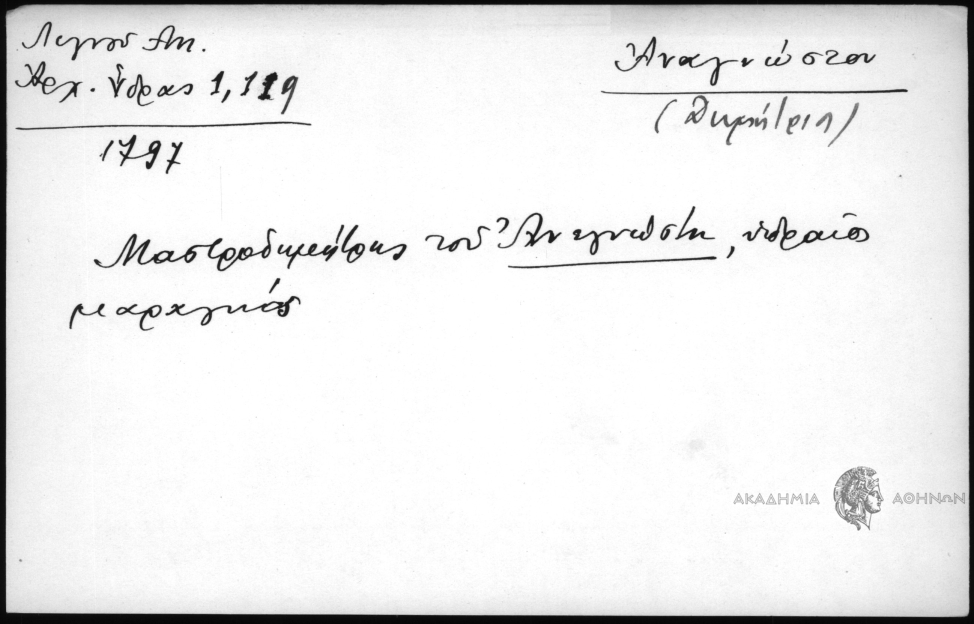 Λιγνού Αντ.
Ἀρχ. Ὕδρας 1, 119
1797
Ἀναγνώστου
(Δημήτρης)
Μαστροδημήτρης τοῦ Ἀνεγνώστη, ὑδραῖος
μαραγκός
ΑΚΑΔΗΜΙΑ ΑΘΗΝΩΝ